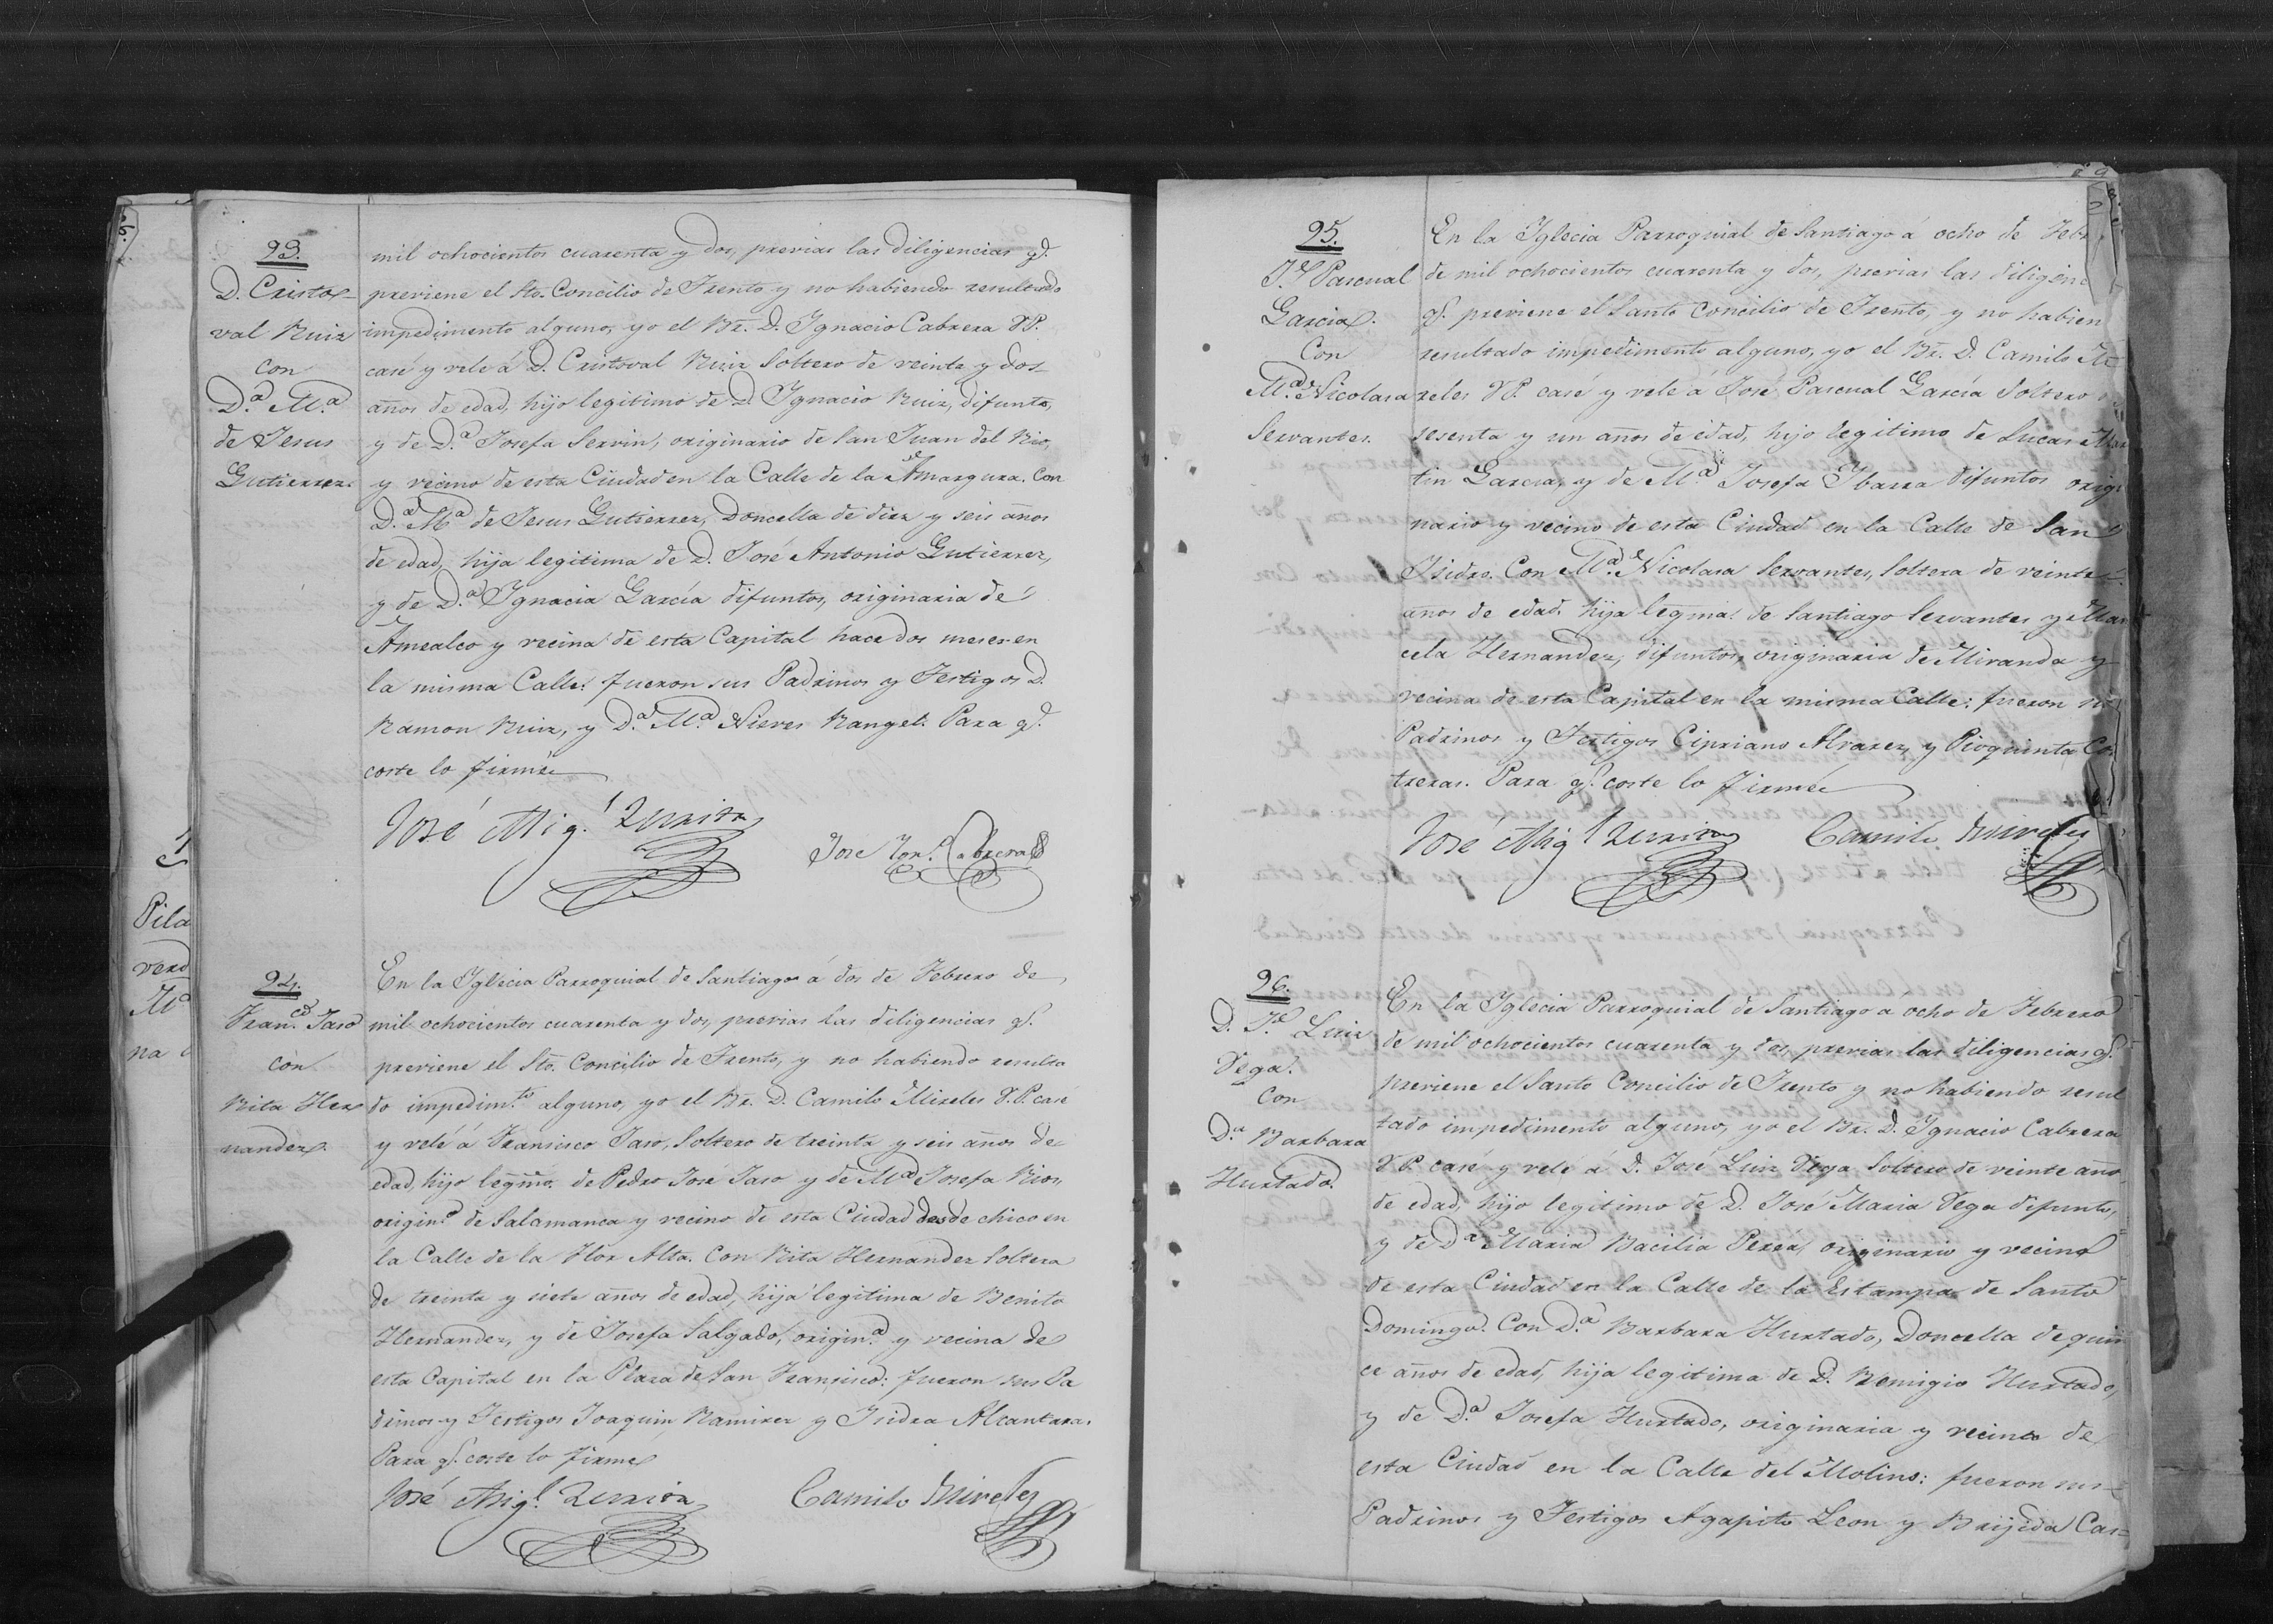 93.
D. Cristo-
val Ruiz
con
D.ª M.ª
de Jesus
Gutierrez.
mil ochocientos cuarenta y dos, previas las diligencias q.e
previene el Sto. Concilio de Trento y no habiendo resultado
impedimento alguno, yo el Br. D. Ygnacio Cabrera VP.
casé y velé á D. Cristoval Ruiz Soltero de veinte y dos
años de edad, hijo legitimo de D. Ygnacio Ruiz, difunto,
y de D.ª Josefa Servin, originario de San Juan del Rio,
y vecino de esta Ciudad en la Calle de la Amargura. Con
D.ª M.ª de Jesus Gutierrez, Doncella de diez y seis años
de edad, hija legitima de D. José Antonio Gutierrez,
y de D.ª Ygnacia García difuntos, originaria de
Amealco y vecina de esta Capital hace dos meses en
la misma Calle: fueron sus Padrinos y Testigos D.
Ramon Ruiz, y D.ª M.ª Nieves Rangel. Para q.e
coste lo firmé
José Mig.l Zurita
Jose Ygn.o Cabrera
94.
Fran.co Jaso
con
Rita Her
nandez.
En la Yglecia Parroquial de Santiago á dos de Febrero de
mil ochocientos cuarenta y dos, previas las diligencias q.e
previene el Sto. Concilio de Trento, y no habiendo resulta
do impedim.to alguno, yo el Br. D. Camilo Mireles V.P. casé
y velé á Fransisco Jaso, Soltero de treinta y seis años de
edad, hijo legmo. de Pedro José Jaso y de M.ª Josefa Rios,
origin.o de Salamanca y vecino de esta Ciudad desde chico en
la Calle de la Flor Alta. Con Rita Hernandez Soltera
de treinta y siete años de edad, hija legitima de Benito
Hernandez, y de Josefa Salgado, origin.ª y vecina de
esta Capital en la Plaza de San Fransisco: fueron sus Pa
drinos y Testigos Joaquin Ramirez y Ysidra Alcantara.
Para q.e coste lo firmé
José Mig.l Zurita
Camilo Mireles
95.
J.e Pascual
García.
Con
M.ª Nicolasa
Servantes.
En la Yglecia Parroquial de Santiago á ocho de Febr
de mil ochocientos cuarenta y dos, previas las diligenc
q.e previene el Santo Concilio de Trento, y no habien
resultado impedimento alguno, yo el Br. D. Camilo Mi
reles VP. casé y velé á José Pascual García Soltero
sesenta y un años de edad, hijo legitimo de Lucas Mar
tin García, y de M.ª Josefa Ybarra difuntos origi
nario y vecino de esta Ciudad en la Calle de San
Ysidro. Con M.ª Nicolasa Servantes, Soltera de veinte
años de edad, hija legma. de Santiago Servantes y Mar
cela Hernandez, difuntos, originaria de Miranda y
vecina de esta Capital en la misma Calle: fueron
Padrinos y Testigos Cipriano Alvarez, y Pioquinta Co
treras. Para q.e coste lo firmé
José Mig.l Zurita
Camilo Mireles
96.
D. J.e Luiz
Vega.
Con
D.ª Barbara
Hurtado.
En la Yglecia Parroquial de Santiago á ocho de Febrero
de mil ochocientos cuarenta y dos, previas las diligencias q.e
previene el Santo Concilio de Trento y no habiendo resul
tado impedimento alguno, yo el Br. D. Ygnacio Cabrera
VP. casé y velé á D. José Luiz Vega Soltero de veinte año
de edad, hijo legitimo de D. José Maria Vega difunto,
y de D.ª Maria Bacilia Perea, originario y vecino
de esta Ciudad en la Calle de la Estampa de Santo
Domingo. Con D.ª Barbara Hurtado, Doncella de quin
ce años de edad, hija legitima de D. Remigio Hurtado,
y de D.ª Josefa Hurtado, originaria y vecina de
esta Ciudad en la Calle del Molino: fueron sus
Padrinos y Testigos Agapito Leon y Brijida Cas-